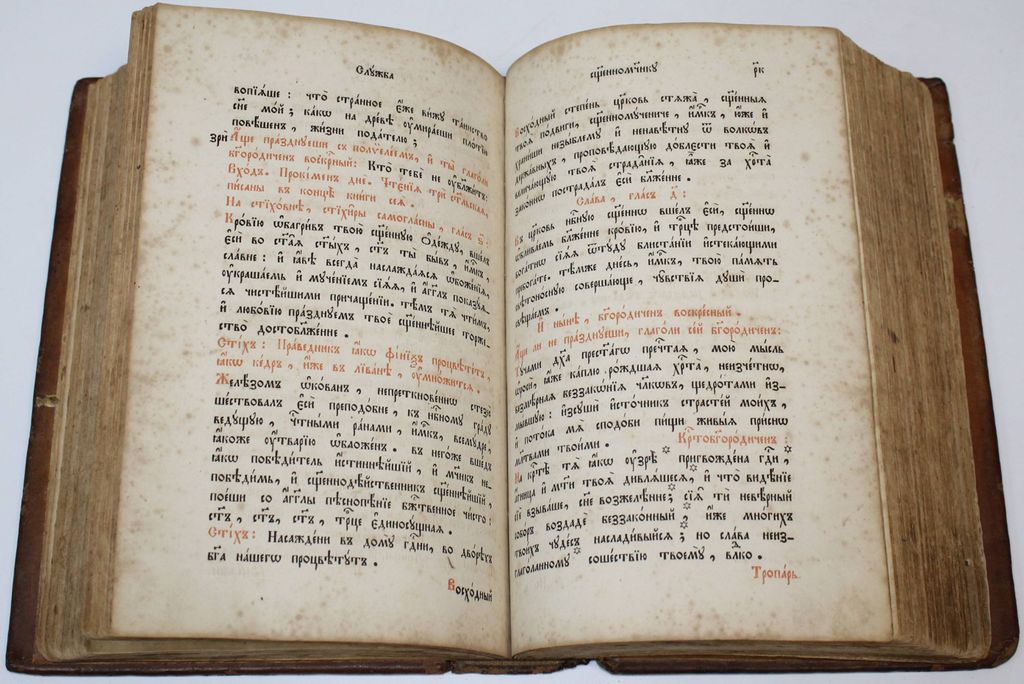 Слꙋ́жба
вопїѧ́ше : что̀ стра́нное є҆́же ви́жꙋ та́инство
сн҃е мо́й ; ка́кѡ на дре́вѣ ᲂу҆мира́еши пло́тїю
повѣ́шенъ , жи́зни пода́телю ;
зри А҆́ще пра́зднꙋеши съ полѷеле́емъ , и҆ ты̀ глаго́ли
бг҃оро́диченъ воскр҃ный : Кто̀ тебѐ не ᲂу҆бл҃жи́тъ :
Вхо́дъ . Прокі́менъ днѐ . Чтє́нїѧ трѝ ст҃и́тєльскаѧ ,
пи̑саны въ концѣ̀ кни́ги сеѧ̀ .
На стїхо́внѣ , стїхи̑ры самогла̑сны , гла́съ ѕ҃ :
Кро́вїю ѡ҆багри́въ твою̀ сщ҃е́ннꙋю ѻ҆де́ждꙋ , вше́лъ
є҆сѝ во ст҃а̑ѧ ст҃ы́хъ , ст҃ъ ты̀ бы́въ , и҆́м҃къ ,
сла́вне : и҆ ꙗ҆́вѣ всегда̀ наслажда́ѧсѧ ѡ҆боже́нїѧ ,
ᲂу҆краша́емь и҆ мꙋче́нїемъ сїѧ́ѧ , и҆ а҆́гг҃лъ показꙋ́ѧ-
сѧ чистѣ́йшими причаще́нїи . тѣ́мъ тѧ̀ чти́мъ ,
и҆ любо́вїю пра́зднꙋемъ твоѐ сщ҃е́ннѣйшее торже-
ство̀ достобл҃же́нне .
Сті́хъ : Пра́ведникъ ꙗ҆́кѡ фі́нїѯъ процвѣте́тъ ,
ꙗ҆́кѡ ке́дръ , и҆́же въ лїва́нѣ , ᲂу҆мно́житсѧ .
Желѣ́зомъ ѡ҆ко́ванъ , непреткнове́ннѡ стезю̀
ше́ствовалъ є҆сѝ преподо́бне , къ нб҃е́номꙋ гра́дꙋ
ведꙋ́щꙋю , чт҃ны́ми ра́нами , и҆́м҃къ , всемꙋ́дре ,
ꙗ҆́коже ᲂу҆́тварїю ѡ҆бложе́нъ . въ него́же вше́дъ
ꙗ҆́кѡ побѣди́тель и҆́стиннѣйшїй , и҆ мч҃нкъ не-
побѣди́мь , и҆ сщ҃еннодѣ́йственникъ сщ҃е́ннѣйшїй ,
пое́ши со а҆́гг҃лы пѣснопѣ́нїе бж҃твенное чи́сто :
ст҃ъ , ст҃ъ , ст҃ъ , трⷪ҇це є҆диносꙋ́щнаѧ .
Сті́хъ : Насажде́ни въ домꙋ̀ гд҃ни , во дво́рѣхъ
бг҃а на́шегѡ процвѣтꙋ́тъ .
Восхо́дный
сщ҃енномч҃никꙋ
рк
Восхо́дный степе́нь цр҃ковь стѧжа̀ , сщ҃є́нныѧ
твоѧ̑ по́двиги , сщ҃енномꙋ́чениче , и҆́м҃къ , ю҆́же и҆
храни́ши незы́блемꙋ и҆ ненавѣ́тнꙋ ѿ волкѡ́въ
держа́вныхъ , проповѣ́дающꙋю до́блести твоѧ̑ и҆
велича́ющꙋю твоѧ̑ страда̑нїѧ , ꙗ҆̀же за хрⷭ҇та̀
зако́ннѡ пострада́лъ є҆сѝ бл҃же́нне .
Сла́ва , гла́съ д҃ :
Въ цр҃ковь нб҃е́снꙋю сщ҃е́ннѡ вше́лъ є҆сѝ , сщ҃е́ннѡ
ѡ҆блива́емь бл҃же́нне кро́вїю , и҆ трⷪ҇цѣ предстои́ши ,
бога́тнѡ сїѧ́ѧ ѿтꙋ́дꙋ блиста́нїи и҆стека́ющими
пребога́те . тѣ́мже дне́сь , и҆́м҃къ , твою̀ па́мѧть
свѣтоно́снꙋю соверша́юще , чꙋ̑вствїѧ дꙋшѝ про-
свѣща́емъ .
И҆ ны́нѣ , бг҃оро́диченъ воскре́сный .
А҆́ще ли не пра́зднꙋеши , глаго́ли се́й бг҃оро́диченъ :
Тꙋ́чами дх҃а прест҃а́гѡ преч҃таѧ , мою̀ мы́сль
ѡ҆росѝ , ꙗ҆́же ка́плю ро́ждшаѧ хрⷭ҇та̀ , неизче́тнѡ ,
безмѣ̑рнаѧ беззакѡ́нїѧ чл҃кѡвъ , щедро́тами и҆з-
мы́вшꙋю : и҆зсꙋшѝ и҆сто́чникъ страсте́й мои́хъ ,
и҆ пото́ка мѧ̀ сподо́би пи́щи живы́ѧ при́снѡ
мл҃твами твои́ми .
Крⷭ҇тобг҃оро́диченъ :
На крⷭ҇тѣ̀ тѧ̀ ꙗ҆́кѡ ᲂу҆зрѣ̀ пригвожде́на гдⷭ҇и ,
а҆́гница и҆ мт҃и твоѧ̀ дивлѧ́шесѧ , и҆ что̀ видѣ́нїе
сїѐ взыва́ше , сн҃е возжеле́нне ; сїѧ̑ тѝ невѣ́рный
собо́ръ воздадѐ беззако́нный , и҆́же мно́гихъ
твои́хъ чꙋде́съ наслади́выйсѧ ; но сла́ва неиз-
глаго́ланномꙋ соше́ствїю твоемꙋ̀ , влⷣко .
Тропа́рь